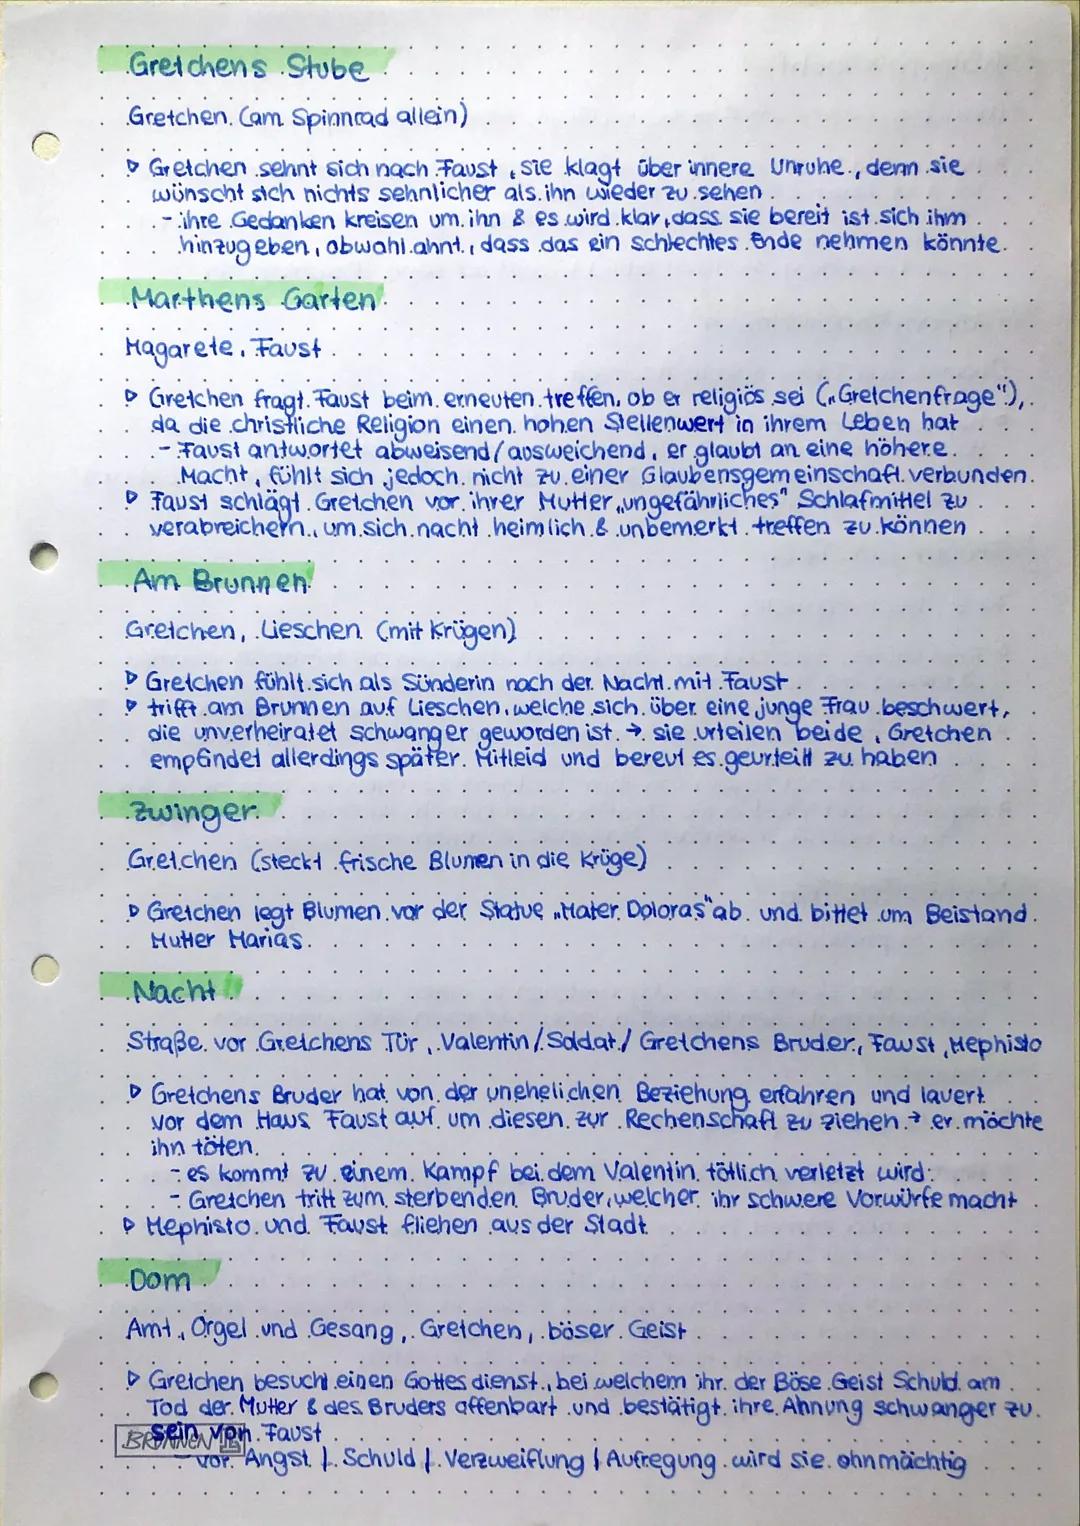 Gretchens Stube
Gretchen (am Spinnrad allein)
▷ Gretchen sehnt sich nach Faust, sie klagt über innere Unruhe, denn sie
wünscht sich nichts sehnlicher als ihn wieder zu sehen
- ihre Gedanken kreisen um ihn & es wird klar, dass sie bereit ist sich ihm
hinzugeben, obwohl ahnt, dass das ein schlechtes Ende nehmen könnte.
Marthens Garten
Magarete, Faust
▷ Gretchen fragt Faust beim erneuten treffen, ob er religiös sei („Gretchenfrage"),
da die christliche Religion einen hohen Stellenwert in ihrem Leben hat
- Faust antwortet abweisend/ausweichend, er glaubt an eine höhere
Macht, fühlt sich jedoch nicht zu einer Glaubensgemeinschaft verbunden.
▷ Faust schlägt Gretchen vor ihrer Mutter „ungefährliches" Schlafmittel zu
verabreichern, um sich nacht heimlich & unbemerkt treffen zu können
Am Brunnen
Gretchen, Lieschen (mit Krügen)
▷ Gretchen fühlt sich als Sünderin nach der Nacht mit Faust
▷ trifft am Brunnen auf Lieschen, welche sich über eine junge Frau beschwert,
die unverheiratet schwanger geworden ist → sie urteilen beide, Gretchen
empfindet allerdings später Mitleid und bereut es geurteilt zu haben
Zwinger
Gretchen (steckt frische Blumen in die Krüge)
▷ Gretchen legt Blumen vor der Statue „Mater Doloras" ab und bittet um Beistand
Mutter Marias.
Nacht
Straße vor Gretchens Tür, Valentin/Soldat/Gretchens Bruder, Faust, Mephisto
▷ Gretchens Bruder hat von der unehelichen Beziehung erfahren und lauert
vor dem Haus Faust auf um diesen zur Rechenschaft zu ziehen → er möchte
ihn töten.
- es kommt zu einem Kampf bei dem Valentin tötlich verletzt wird
- Gretchen tritt zum sterbenden Bruder, welcher ihr schwere Vorwürfe macht
▷ Mephisto und Faust fliehen aus der Stadt
Dom
Amt, Orgel und Gesang, Gretchen, böser Geist
▷ Gretchen besucht einen Gottesdienst, bei welchem ihr der Böse Geist Schuld am
Tod der Mutter & des Bruders offenbart und bestätigt ihre Ahnung schwanger zu
sein von Faust
- vor Angst / Schuld / Verzweiflung / Aufregung wird sie ohnmächtig
BRUNNEN